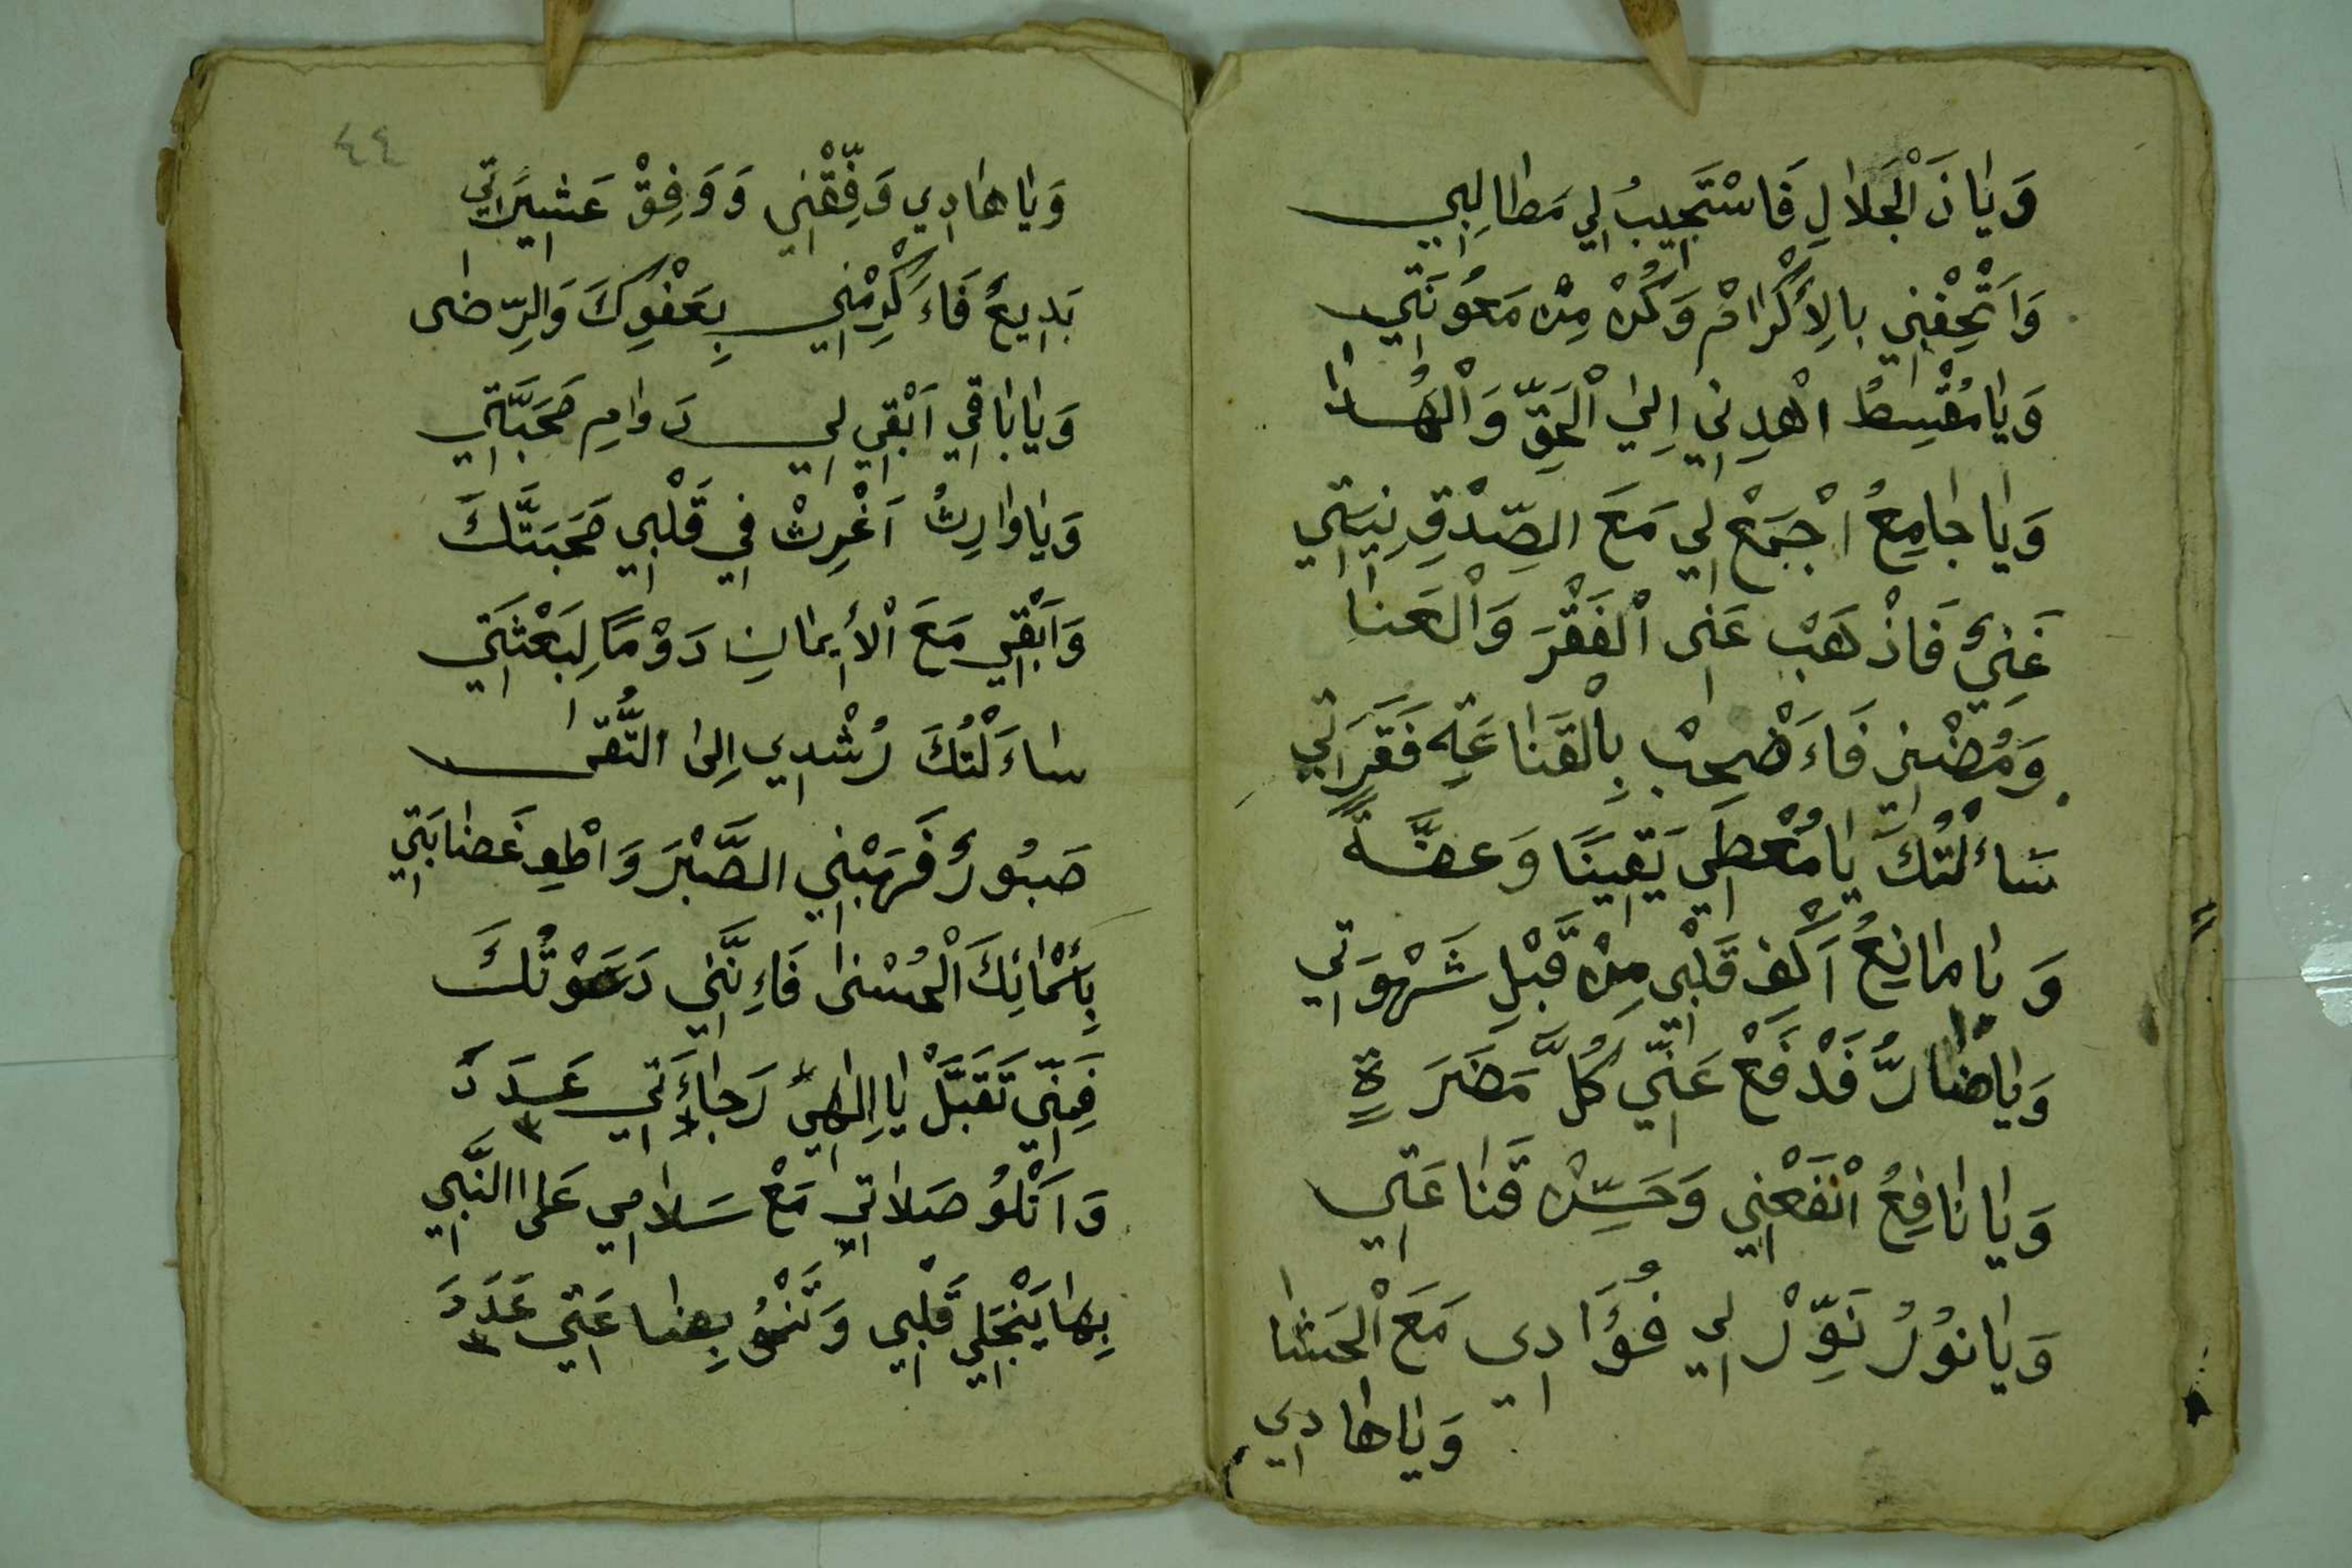 وَيَا ذَ الْجَلَالِ فَاسْتَجِيبُ لِي مَطَالِبِي
وَاَتْحِفْنِي بِالِأَكْرَامْ وَكُنْ مِنْ مَعُوْنَتِي
وَيَا مُقْسِطُ اهْدِنِي اِلَي الْحَقِّ وَالْهُدَا
وَيَا جَامِعُ اجْمَعْ لِي مَعَ الصِّدْقِ نِيَتِي
غَنِيٌّ فَاذْهَبْ عَنِى الْفَقْرَ وَالْعَنَا
وَمُغْنِي فَاءَصْحِبْ بِالْقَنَاعَةِ فَقَرَاتِي
سَاءَلْتُكَ يَا مُعْطِي يَقِينًا وَعِفَّةً
وَيَا مَانِعُ اَكْفِ قَلْبِي مِنْ قَبْلِ شَهْوَتِي
وَيَاضَارُّ فَدْفَعْ عَنِّي كُلَّ مَضَرَةٍ
وَيَا نَافِعُ انْفَعْنِي وَحَسِّنْ قَنَاعَتِي
وَيَا نُوْرُ نَوِّرْ لِي فُؤَادِي مَعَ الْحَشَا
وَيَاهَادِي
٤٤
وَيَاهَادِي وَفِّقْنِي وَوَفِقْ عَشِيرَاتِي
بَدِيعٌ فَاءَكْرِمْنِي بِعَفْوِكَ وَالرِّضَى
وَيَا بَاقِي اَبْقِي لِي دَوَامِ مَحَبَّتِي
وَيَا وَارِثُ اَغْرِثْ فِي قَلْبِي مَحَبَتَّكَ
وَاَبْقِي مَعَ الْأِيمَانِ دَوْمًا لِبَعْثَتِي
سَاءَلْتُكَ رُشْدِي اِلَى التُّقَى
صَبُورٌ فَهَبْنِي الصَّبْرَ وَاطْعِ غَضَابَتِي
بِأَسْمَائِكَ الْحُسْنَى فَاءِنَّنِي دَعَوْتُكَ
فَمِنِّي تَقَبَّلْ يَا اِلَهِي رَجَاءَتِي عَدَدَ ٣
وَاَتْلُو صَلَاتِي مَعْ سَلَامِي عَلَى النَّبِي
بِهَا يَنْجَلِي قَلْبِي وَتَنْمُو بِضَاعَتِي عَدَدَ ٣